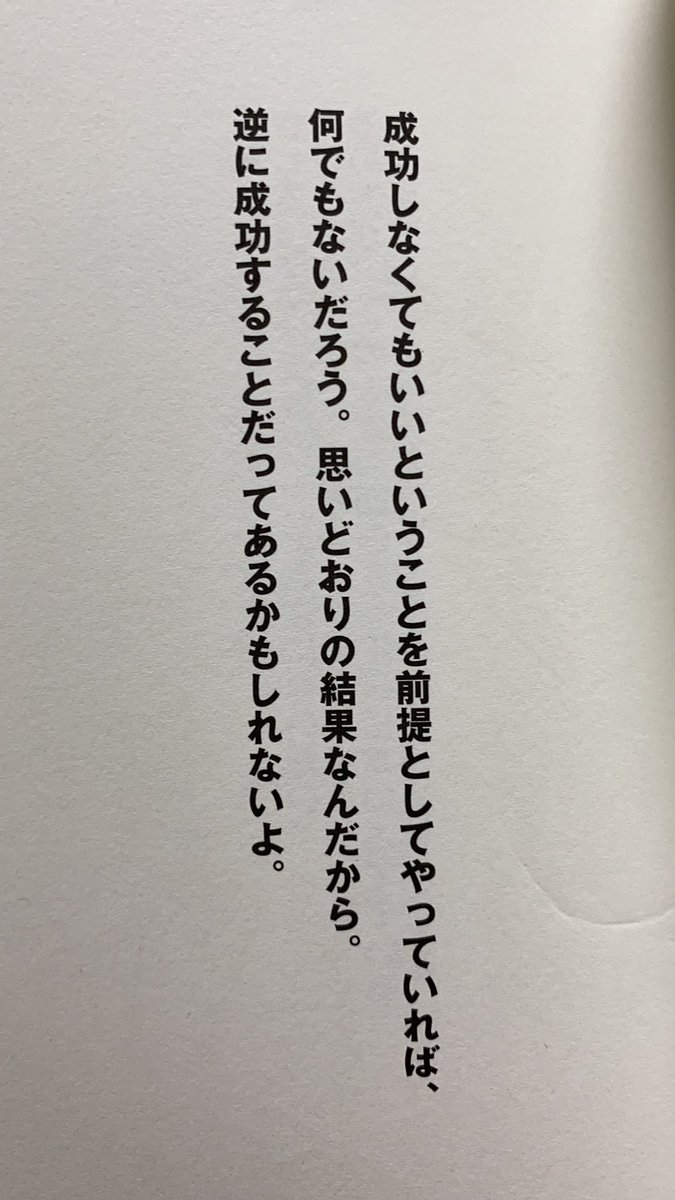 成功しなくてもいいということを前提としてやっていれば、
何でもないだろう。思いどおりの結果なんだから。
逆に成功することだってあるかもしれないよ。